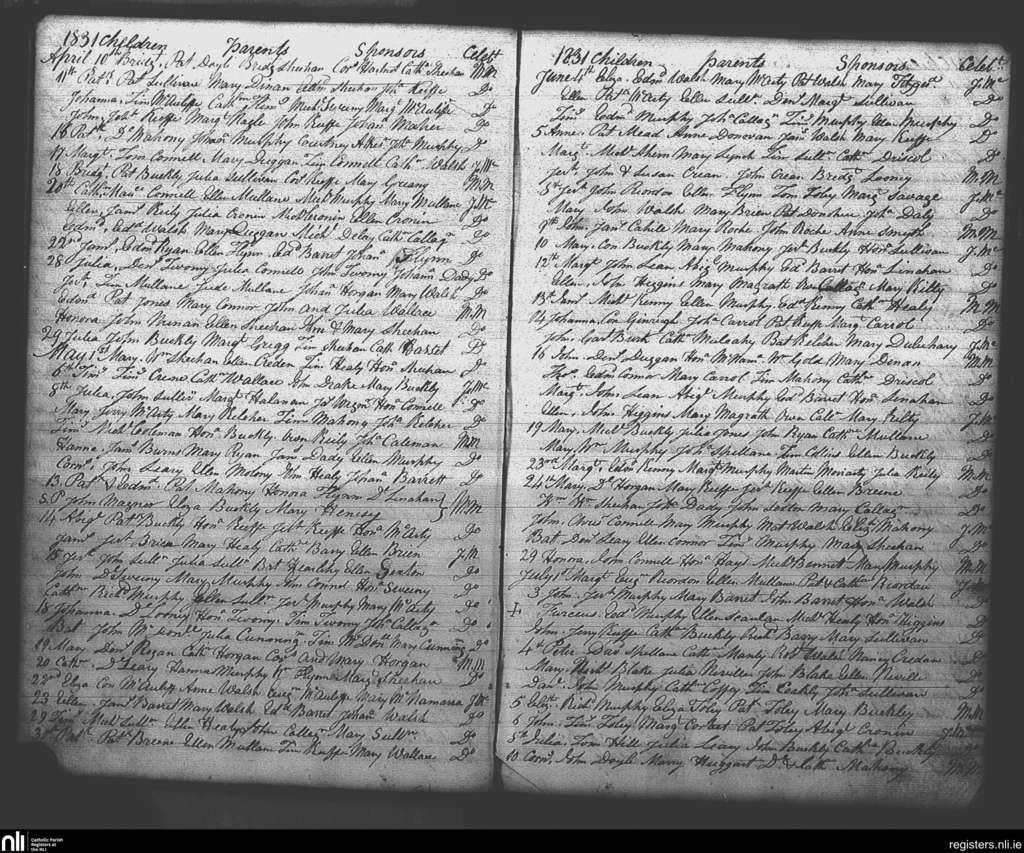 1831 Children Parents Sponsors Celebt
April 10th Bridg. Pat Doyle Bridg Sheehan Cors Hartnet Cath Sheehan M.M
11th Patk. Pat Sullivan Mary Dinan Edm Sheehan Joh Keiffe Do
Johanna. Tim McAuliffe Cath Mich Sweeny Marg McAuliffe Do
John. Joh Keiffe Marg Nagle John Keiffe Johan Maher Do
16 Patk. Do Mahony Johan Murphy Courtney Joh Murphy Do
17 Margt. Tom Connell Mary Duggan Tim Connell Cath Walsh J.Mc
18 Bridg. Pat Buckly Julia Sullivan Cors Keiffe Mary Greany M.M
20th Cath. Connell Ellen Mullane Mich Murphy Mary Mullane J.Mc
Ellen. Jams Reily Julia Cronin Mick Cronin Ellen Cronin Do
Edmd. Edd Walsh Mary Duggan Mich Delay Cath Callagn Do
22nd Jams. Edm Ryan Ellen Flynn Edd Barret Johan Flynn Do
28 Julia. Dens Twomy Julia Connell John Twomy Johann Dady Do
Tim Mullane Jude Mullane Johan Horgan Mary Walsh Do
Edmd Pat Jones Mary Connor John and Julia Wallace M.M
Honora John Neenan Ellen Sheehan Wm & Mary Sheehan Do
29 Julia John Buckly Margt Gregg Tim Sheehan Cath Do
May 1st Mary. Wm Sheehan Ellen Creden Tim Healy Hon Meehan Do
6th Tims Tims Crone Cath Wallace John Drake Mary Buckly J.Mc
8th Julia. John Sulliv Margt Halanan Hon Connell Do
Mary Jerry McAuty Mary Kelcher Tim Mahony Joh Kelcher Do
Tims Mich Coleman Hon Buckly Owen Reily Joh Caleman M.M
Hanna. Jams Burns Mary Ryan Jams Dady Ellen Murphy Do
Corns. John Leary Ellen Molony Wm Healy Johan Barrett Do
13. Pat & Edm. Pat Mahony Honora Flynn Ds Linahan
S.P John Magner Eliza Buckly Mary Henesy M.M
14 Abigl Pat Buckly Hon Keiffe Keiffe Hon McAuty Do
Jams Brien Mary Healy Cath Bary Ellen Brien J.M
15 John Sullv Julia Sullv Bat Ellen Sexton Do
John Ds Sweeny Mary Murphy Tim Connor Hon Sweeny Do
Cath Rich Murphy Ellen Sullv Murphy Mary McAuty Do
18 Johanna. Ds Looney Hon Twomy. Tim Twomy Joh Callagn Do
Bat. John McDon Julia Cunning. Tim McDon Mary Cunning Do
19 Mary Dens Ryan Cath Horgan Cors and Mary Horgan M.M
20 Cath. Ds Leary Hanna Murphy Flynn Marg Sheehan Do
22nd Eliza Con McAuliffe Anne Walsh Eugs McAuliffe Mary McNamara J.Mc
23 Ellen Jams Barret Mary Walsh Edd Barret Johan Walsh Do
29 Tims Mich Sullv Ellen Healy John Callagn Mary Sullv Do
Patk. Pat Breene Ellen Mullane Tim Keiffe Mary Wallace Do
1831 Children Parents Sponsors Celebt
June 4th Eliza. Edm Walsh Mary McAuty Pat Walsh Mary Fitzgd J.Mc
Ellen Pat McAuty Ellen Sullv. Dens Margt Sullivan Do
Tims Edm Murphy Joh Callagn Tims Murphy Ellen Murphy Do
5 Anne. Pat Mead Anne Donovan Jams Walsh Mary Keiffe Do
Margt. Mich Ahern Mary Lynch Tim Sullv Cath Driscol Do
John & Susan Crean. John Crean Bridg Looney M.M
John Riordon Ellen Flynn Tom Foley Marg Savage J.Mc
Mary. John Walsh Mary Brien Pat Donohue Joh Daly Do
9th John. Jams Cahill Mary Roche. John Roche Anne Smyth M.M
10 Mary. Con Buckly Mary Mahony Buckly Hon Sullivan J.Mc
12th Margt. John Lean Abigl Murphy Edd Barret Hon Linahan Do
Ellen. John Higgins Mary Magrath Owen Callagn Mary Kilty Do
13th Jams. Mich Kenny Ellen Murphy Edm Kenny Cath Healy M.M
14 Johanna. Con Ginreigh Joh Carrol Pat Keiffe Marg Carrol Do
John. Gart Burk Cath Mulcahy Bat Kelcher Mary Dulechary J.Mc
16 John. Dens Duggan Hon McNam Wm Gold Mary Denon M.M
Thos. Edm Connor Mary Carrol Tim Mahony Cath Driscol Do
Margt. John Lean Abigl Murphy Edd Barret Hon Linahan Do
Ellen. John Higgins Mary Magrath Owen Mary Kilty J.Mc
19 Mary. Mich Buckly Julia Jones John Ryan Cath Mullane Do
Mary Wm Murphy Joh Spillane Tim Collins Ellen Buckly Do
23rd Margt. Edm Kenny Marg Murphy Martin Moriarty Julia Kiely M.M
24th Mary. Ds Horgan Mary Keiffe Keiffe Ellen Breene Do
Wm Wm Sheehan Joh Dady John Lester Mary Callagn Do
John. Connell Mary Murphy Mat Walsh Eliza Mahony J.Mc
Bat Dens Leary Ellen Connor Tims Murphy Mary Sheehan Do
29 Honora. John Connell Hon Hays Mich Bennet Mary Murphy M.M
July 1st Margt Eugs Riordon Ellen Mullane Pat & Cath Riordan
3 John. Murphy Mary Barret John Barret Hon Walsh Do
Edd Murphy Ellen Scanlan Mich Healy Hon Higgins Do
John. Jerry Keiffe Cath Buckly Rich Barry Mary Sullivan Do
4th Peter Dav Spellan Cath Manly Rob Walsh Nancy Credan Do
Mary. Blake Julia Nevellen John Blake Ellen Neville Do
Danl. John Murphy Cath Coffey Tim Joh Sullivan Do
5 Eliz. Rich Murphy Eliza Foley Pat Foley Mary Buckley M.M
6 John. Tims Foley Marg Corket Pat Foley Abigl Cronin
Julia. Tom Hill Julia Leary John Buckly Cath Buckly Do
10 Corns. John Doyle Mary Huggart Ds & Cath Mahony M.M
nli Catholic Parish Registers at the NLI
registers.nli.ie